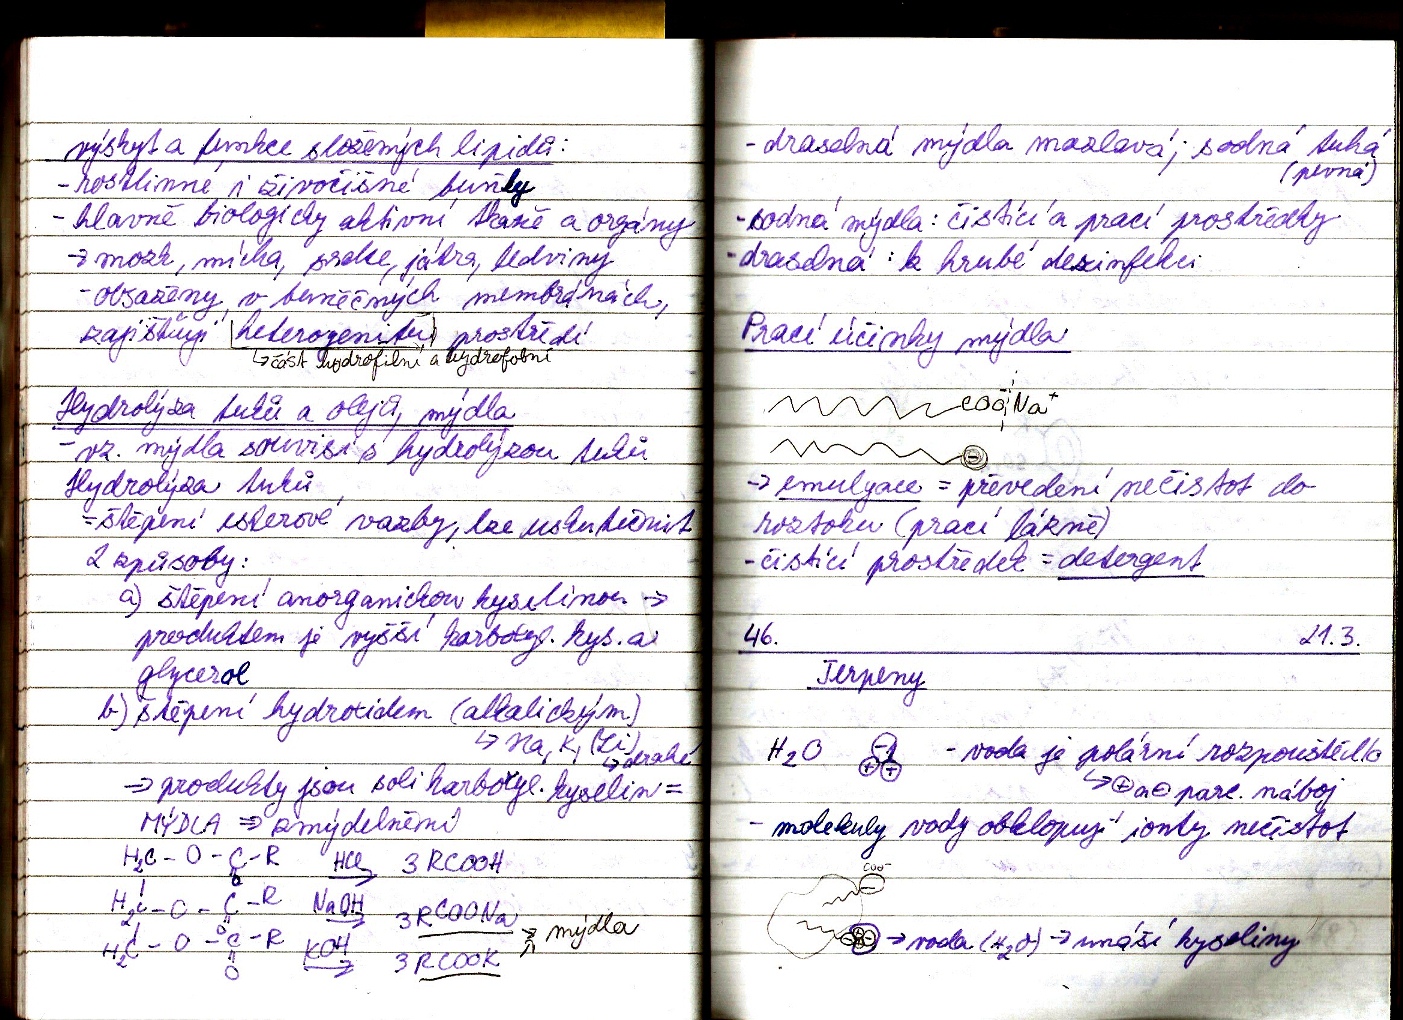 výskyt a funkce složených lipidů:
- rostlinné i živočišné buňky
- hlavně biologicky aktivní tkáně a orgány
→ mozek, mícha, srdce, játra, ledviny
- obsaženy v buněčných membránách,
zajišťují heterogenitu prostředí
↳ část hydrofilní a hydrofobní
Hydrolýza tuků a olejů, mýdla
- vz. mýdla souvisí s hydrolýzou tuků
Hydrolýza tuků
= štěpení esterové vazby, lze uskutečnit
2 způsoby:
a) štěpení anorganickou kyselinou →
produktem je vyšší karboxyl. kys. a
glycerol
b) štěpení hydroxidem (alkalickým)
↳ Na, K, (Li)
↳ drahé
⇒ produkty jsou soli karboxyl. kyselin =
MÝDLA ⇒ zmýdelnění
H₂C - O - C - R HCl → 3 RCOOH
O
H₂C - O - C - R NaOH → 3 RCOONa
O
H₂C - O - C - R KOH → 3 RCOOK
O
→ mýdla
- draselná mýdla mazlavá; sodná tuhá
(pevná)
- sodná mýdla: čistící a prací prostředky
- draselná: k hrubé dezinfekci
Prací účinky mýdla
COO⁻ Na⁺
-
→ emulgace = převedení nečistot do
roztoku (prací lázně)
- čistící prostředek = detergent
46. 21.3.
Terpeny
H₂O - + + - voda je polární rozpouštědlo
↳ ⊕ a ⊖ parc. náboj
- molekuly vody obklopují ionty nečistot
COO⁻
-
→ voda (H₂O) → unáší kyseliny